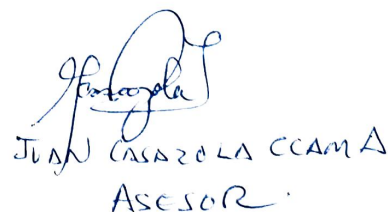 JUAN CASAZOLA CCAMA
ASESOR.